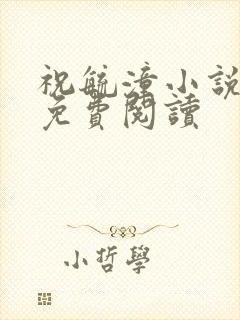 祝毓漳小說
免費閱讀
小哲學